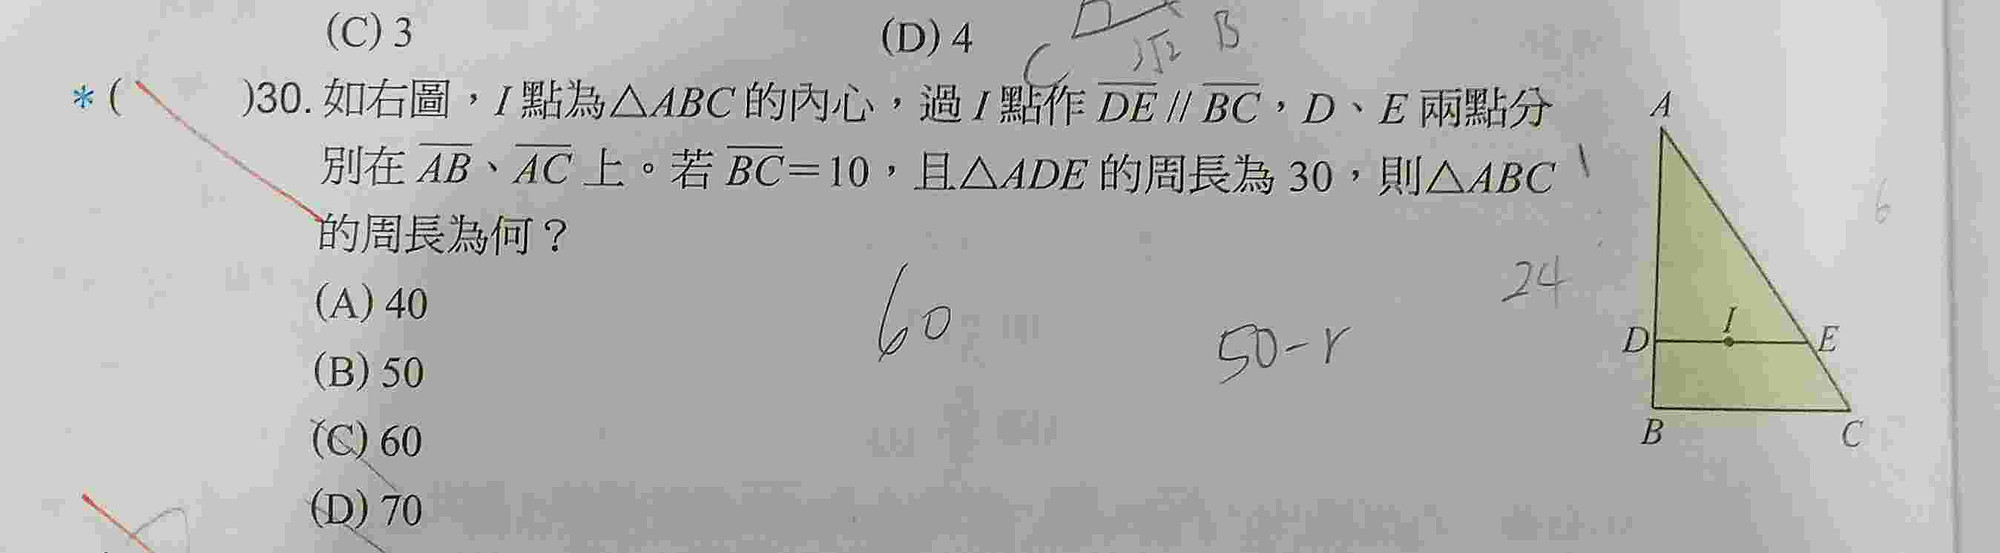 (C) 3 (D) 4
C 3√2 B
*( )30. 如右圖，I 點為△ABC 的內心，過 I 點作 DE // BC，D、E 兩點分
別在 AB、AC 上。若 BC＝10，且△ADE 的周長為 30，則△ABC
的周長為何？
(A) 40
(B) 50
(C) 60
(D) 70
60
50-r
24
6
A
D I E
B C